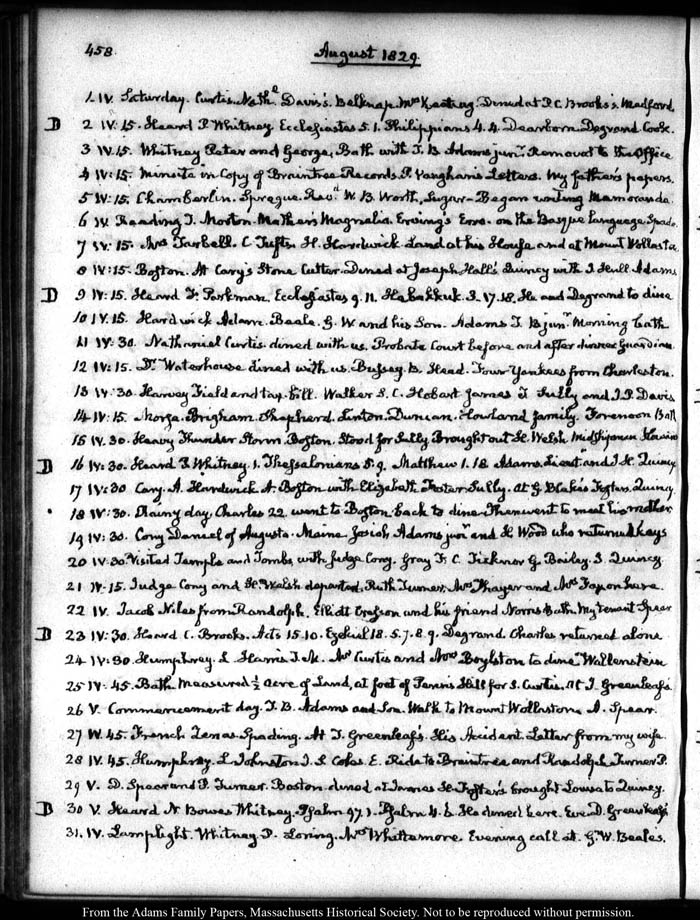 458 August 1829
1. IV. Saturday. Curtis. Nathl. Davis's. Belknap. Mrs Keating. Dined at P.C. Brooks's Medford
D 2 IV. 15. Heard P. Whitney. Ecclesiastes 5.1. Philippians 4.4. Dearborn. Degrand. Cook.
3 IV. 15. Whitney Peter and George, Bath with T. B. Adams junr. Removal to the Office
4 IV: 15. Minute in Copy of Braintree Records. P. Vaughan's Letters. My father's papers.
5 IV: 15. Chamberlin. Sprague. Revd W. B. Worth, Began writing Memoranda.
6 IV. Reading J. Morton. Mather's Magnalia. Erving's on the Basque Language. Spade.
7 IV. 15. Mrs Tarbell. C. Tufts. H. Hardwick. Land at his House and at Mount Wollaston
8 IV: 15. Boston. At Cary's Stone Cutter. Dined at Joseph Hall's Quincy with I. Hull Adams
D 9 IV: 15. Heard F. Parkman. Ecclesiastes 9. 11. Habakkuk. 3. 17.18. He and Degrand to dine
10 IV. 15. Hardwick Adam. Beale. G. W. and his Son. Adams T. B. junr. Morning bath
11 IV. 30. Nathaniel Curtis dined with us. Probate Court before and after dinner Guardian
12 IV: 15. Dr Waterhouse dined with us. Bussey. B. Head. Four Yankees from Charleston.
13 IV. 30. Harvey Field and tax bill. Walker S. C. Hobart James T. Sully and J. P. Davis
14 IV: 15. Morse. Brigham. Shepherd. Linton. Duncan. Howland family. Forenoon Bath
15 IV. 30. Heavy Thunder Storm. Boston. Stood for Sully. Brought out H. Welsh Midshipman Harris
D 16 IV: 30. Heard P. Whitney. 1. Thessalonians 5.9. Matthew 1. 18. Adams, Lieut and J. H. Quincy
17 IV: 30 Cary. A. Hardwick. A. Boston with Elizabeth. Foster. Sully. At G. Blake's. Foster's. Quincy.
18 IV: 30. Rainy day. Charles 22. went to Boston back to dine. Then went to meet his mother
19 IV: 30. Cony Daniel of Augusta. Maine. Josiah Adams junr and H. Wood who returned keys
20 IV. 30. Visited Temple and Tombs, with Judge Cony. Gray F. C. Ticknor G. Bailey. J. Quincy
21 IV. 15. Judge Cony and H. Welsh departed. Ruth Turner, Mrs Thayer and Mrs Faxon here.
22 IV. Jacob Niles from Randolph. Elliott Cresson and his friend Norris. Bath. My tenant Spear
D 23 IV: 30. Heard C. Brooks. Acts 15. 10. Ezekiel 18. 5. 7. 8. 9. Degrand. Charles returned alone
24 IV: 30. Humphrey. L. Harris. T. M. Mr Curtis and Mrs Boylston to dine. Wallenstein
25 IV: 45. Bath. Measured ½ acre of Land, at foot of Penn's Hill for S. Curtis. At J. Greenleaf's
26 V. Commencement day. T. B. Adams and Son. Walk to Mount Wollaston. A. Spear.
27 IV. 45. French Lenas. Spading. At T. Greenleaf's. His Accident. Letter from my wife.
28 IV. 45. Humphrey. L. Johnston. J. S. Coles. E. Ride to Braintree and Randolph. Turner P.
29 V. D. Spear and P. Turner. Boston dined at James H. Foster's brought Louisa to Quincy.
D 30 V. Heard N. Bowes Whitney. Psalm 97. 1. Psalm 4. 6. He dined here. Eve. D. Greenleaf's
31. IV. Lamplight. Whitney P. Loring. Mrs Whittemore. Evening call at G. W. Beale's.
From the Adams Family Papers, Massachusetts Historical Society. Not to be reproduced without permission.